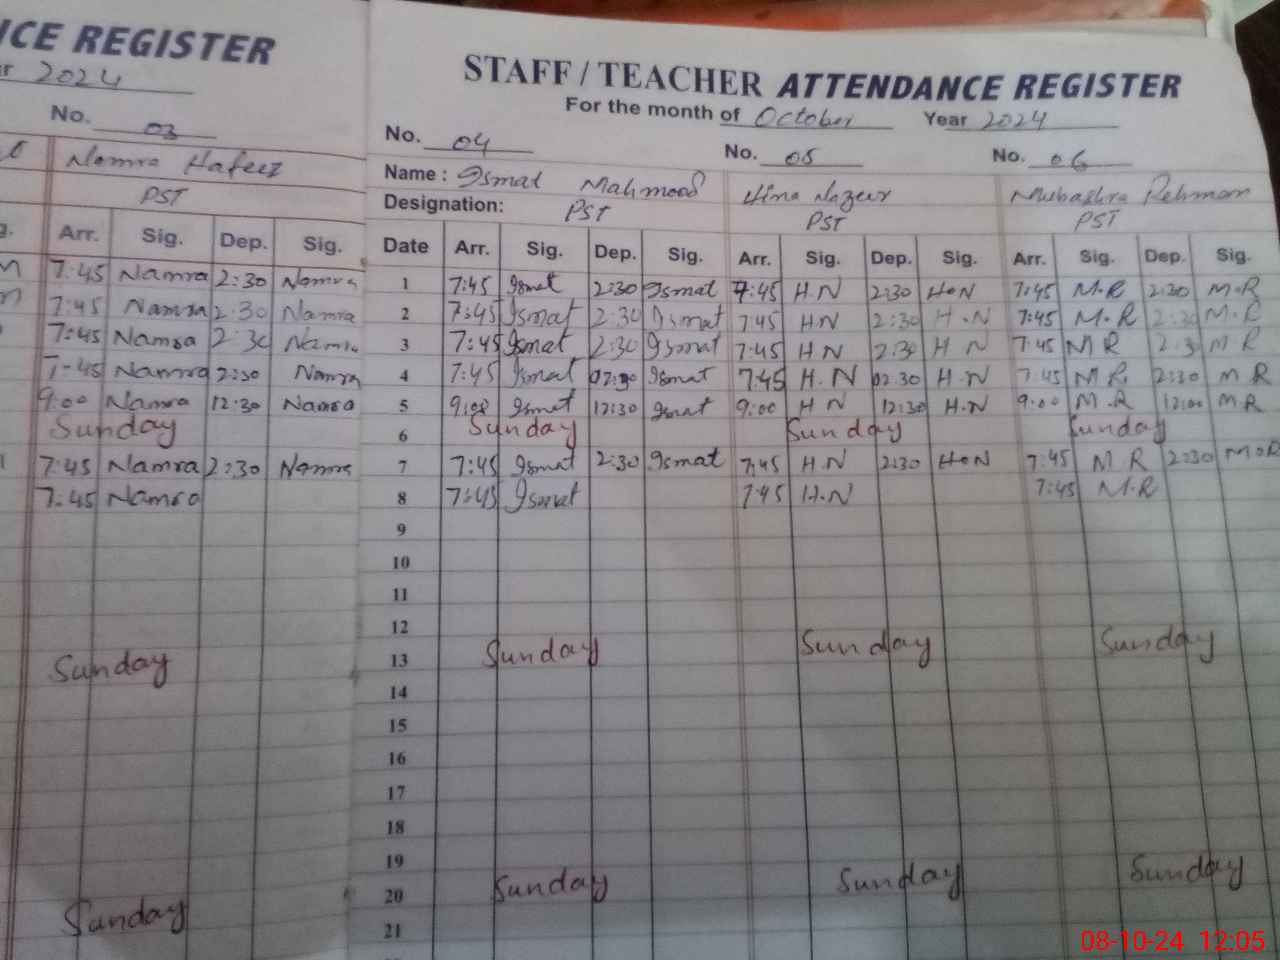 ICE REGISTER
r 2024
No. 03
Namra Hafeez
PST
g. Arr. Sig. Dep. Sig.
7:45 Namra 2:30 Namra
7:45 Namra 2:30 Namra
7:45 Namra 2:30 Namra
7-45 Namra 2:30 Namra
9:00 Namra 12:30 Namra
Sunday
7:45 Namra 2:30 Namra
7:45 Namra
Sunday
Sunday
STAFF / TEACHER ATTENDANCE REGISTER
For the month of October Year 2024
No. 04 No. 05 No. 06
Name : Ismat Mahmood Hina Nazeer Mubashra Rehman
Designation: PST PST PST
Date Arr. Sig. Dep. Sig. Arr. Sig. Dep. Sig. Arr. Sig. Dep. Sig.
1 7:45 Ismat 2:30 Ismat 7:45 H.N 2:30 H.N 7:45 M.R 2:30 M.R
2 7:45 Ismat 2:30 Ismat 7:45 H.N 2:30 H.N 7:45 M.R 2:30 M.R
3 7:45 Ismat 2:30 Ismat 7:45 H N 2:30 H N 7:45 M R 2:3 M R
4 7:45 Ismat 02:30 Ismat 7:45 H.N 02.30 H.N 7:45 M R 2:30 M R
5 9:00 Ismat 12:30 Ismat 9:00 H N 12:30 H.N 9:00 M.R 12:00 M.R
6 Sunday Sunday Sunday
7 7:45 Ismat 2:30 Ismat 7:45 H.N 2:30 H.N 7:45 M R 2:30 M.R
8 7:45 Ismat 7:45 H.N 7:45 M.R
9
10
11
12
13 Sunday Sunday Sunday
14
15
16
17
18
19
20 Sunday Sunday Sunday
21
08-10-24 12:05